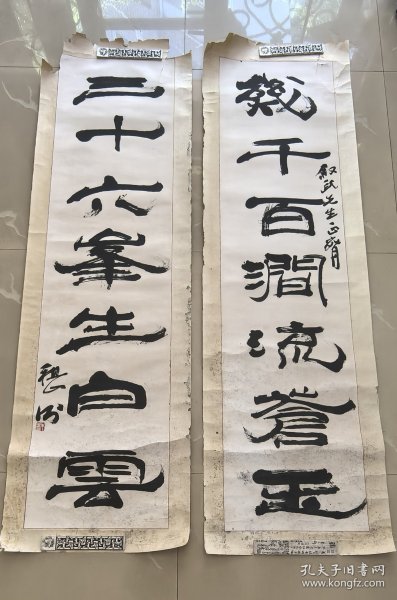 幾千百澗流蒼玉
先生正
三十六峯生白雲
孔夫子旧书网
www.kongfz.com